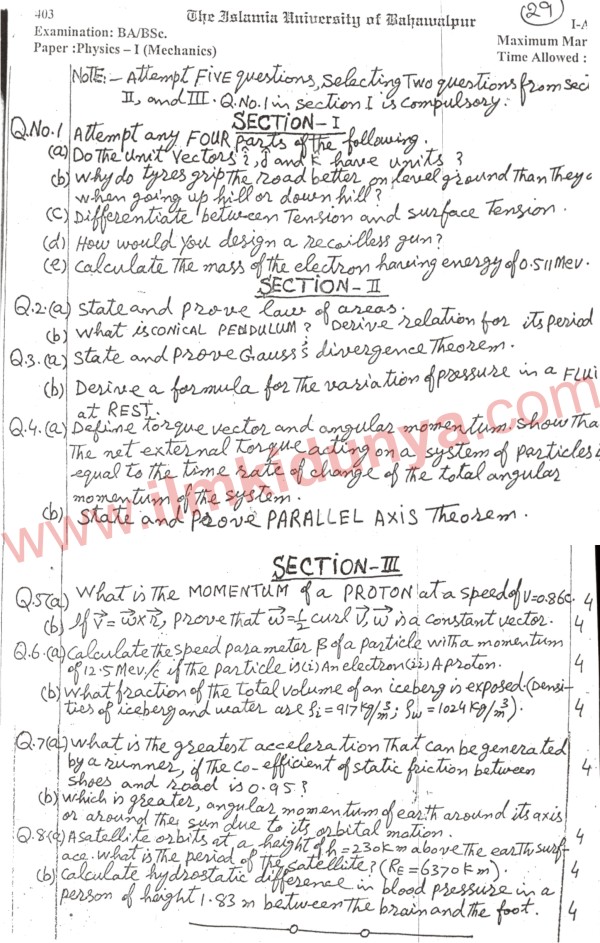 403 The Islamia University of Bahawalpur (29) I-A
Examination: BA/BSc.
Paper :Physics – I (Mechanics)
Maximum Mar
Time Allowed :
NOTE:– Attempt FIVE questions, selecting Two questions from Seci
II, and III. Q.No.1 in section I is compulsory.
SECTION–I
Q.No.1 Attempt any FOUR parts of the following.
(a) Do the unit vectors î, ĵ and k̂ have units ?
(b) Why do tyres grip the road better on level ground than they
when going up hill or down hill?
(c) Differentiate between Tension and surface Tension.
(d) How would you design a recoilless gun?
(e) Calculate the mass of the electron having energy of 0.511 Mev.
SECTION–II
Q.2.(a) State and prove law of areas.
(b) What is CONICAL PENDULUM? Derive relation for its period
Q.3.(a) State and prove Gauss's divergence Theorem.
(b) Derive a formula for the variation of pressure in a FLUI
at REST.
Q.4.(a) Define torque vector and angular momentum show tha
The net external torque acting on a system of particles i
equal to the time rate of change of the total angular
momentum of the system.
(b) State and Prove PARALLEL AXIS Theorem.
www.ilmkidunya.com
SECTION–III
Q.5(a) What is the MOMENTUM of a PROTON at a speed of V=0.86c. 4
(b) If V⃗ = ω⃗ x r⃗, prove that ω⃗ = ½ curl V⃗, ω⃗ is a constant vector. 4
Q.6.(a) Calculate the speed parameter β of a particle with a momentum
of 12.5 Mev/c if the particle is (i) An electron (ii) A proton. 4
(b) What fraction of the total volume of an iceberg is exposed.(Densi-
ties of iceberg and water are ρi = 917 kg/m³; ρw = 1024 kg/m³). 4
Q.7(a) What is the greatest acceleration that can be generated
by a runner, if the co-efficient of static friction between 4
shoes and road is 0.95?
(b) Which is greater, angular momentum of earth around its axis
or around the sun due to its orbital motion. 4
Q.8.(a) A satellite orbits at a height of h = 230 km above the earth surf-
ace. What is the period of the satellite? (RE = 6370 Km). 4
(b) Calculate hydrostatic difference in blood pressure in a
person of height 1.83 m between the brain and the foot. 4